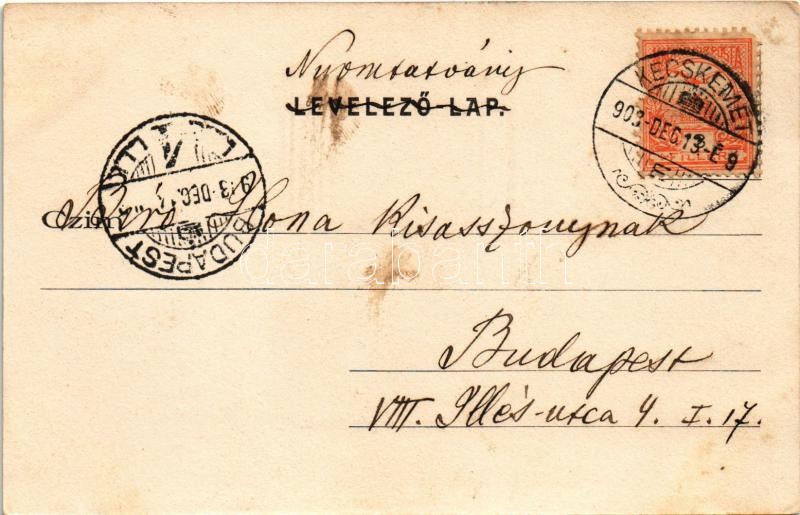 Nyomtatvány
LEVELEZŐ-LAP.
KECSKEMÉT
903-DEC.13-E 9
FILLER
BUDAPEST
913-DEC.14
Czim
Ilona Kisasszonynak
darabanth
Budapest
VIII. Illés-utca 4. I. 17.